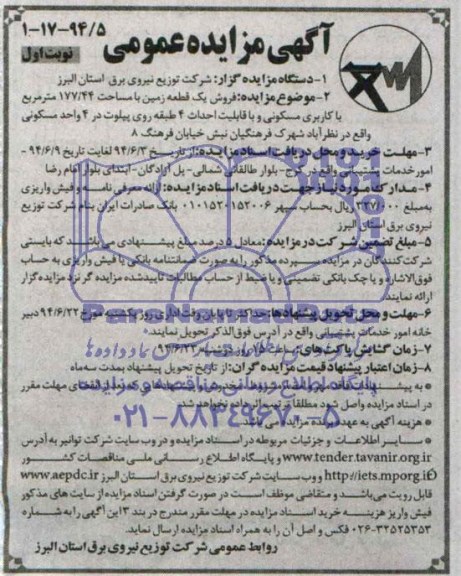 ۱-۱۷-۹۴/۵
آگهی مزایده عمومی
نوبت اول
۱-دستگاه مزایده گزار: شرکت توزیع نیروی برق استان البرز
۲-موضوع مزایده: فروش یک قطعه زمین با مساحت ۱۷۷/۴۴ مترمربع
با کاربری مسکونی و با قابلیت احداث ۴ طبقه روی پیلوت در ۴ واحد مسکونی
واقع در نظرآباد شهرک فرهنگیان نبش خیابان فرهنگ ۸
۳-مهلت خرید و محل دریافت اسناد مزایده: از تاریخ ۹۴/۶/۳ لغایت تاریخ ۹۴/۶/۹ -
امور خدمات پشتیبانی واقع در کرج- بلوار طالقانی شمالی- پل آزادگان- ابتدای بلوار امام رضا
۴-مدارک مورد نیاز جهت دریافت اسناد مزایده: ارائه معرفی نامه و فیش واریزی
به مبلغ ۳۲۷/۰۰۰ ریال بحساب سپهر ۰۱۰۱۵۲۰۱۵۲۰۰۶ بانک صادرات ایران بنام شرکت توزیع
نیروی برق استان البرز
۵-مبلغ تضمین شرکت در مزایده: معادل ۵ درصد مبلغ پیشنهادی می باشد که بایستی
شرکت کنندگان در مزایده سپرده مذکور را به صورت ضمانتنامه بانکی یا فیش واریزی به حساب
فوق الاشاره و یا چک بانکی تضمینی و یا ضبط از حساب مطالبات تاییدشده مزایده گر نزد مزایده گزار
ارائه نمایند.
۶-مهلت و محل تحویل پیشنهادها: حداکثر تا پایان وقت اداری روز یکشنبه مورخ ۹۴/۶/۲۲ دبیر
خانه امور خدمات پشتیبانی واقع در آدرس فوق الذکر تحویل نمایند.
۷-زمان گشایش پاکت های: ساعت ۱۵ روز ۹۴/۶/۲۳
۸-زمان اعتبار پیشنهاد قیمت مزایده گران: از تاریخ تحویل پیشنهاد بمدت سه ماه
* به پیشنهادهای فاقد امضاء، مشروط، مخدوش و پیشنهادهایی که بعد از انقضای مهلت مقرر
در اسناد مزایده واصل شود مطلقا ترتیب اثر داده نخواهد شد.
* هزینه آگهی به عهده برنده مزایده می باشد.
* سایر اطلاعات و جزئیات مربوطه در اسناد مزایده و در وب سایت شرکت توانیر به آدرس
www.tender.tavanir.org.ir و پایگاه اطلاع رسانی ملی مناقصات کشور
http://iets.mporg.ir و وب سایت شرکت توزیع نیروی برق استان البرز www.aepdc.ir
قابل رویت می باشد و متقاضی موظف است در صورت گرفتن اسناد مزایده از سایت های مذکور
فیش واریز هزینه خرید اسناد مزایده در مهلت مقرر مندرج در بند ۳ این آگهی را به شماره
۰۲۶-۳۲۵۲۵۳۵۳ فکس و اصل آن را به همراه اسناد مزایده ارسال نماید.
روابط عمومی شرکت توزیع نیروی برق استان البرز
ParsNamadData
پایگاه اطلاع رسانی مناقصه و مزایده
۰۲۱-۸۸۳۴۹۶۷۰-۵